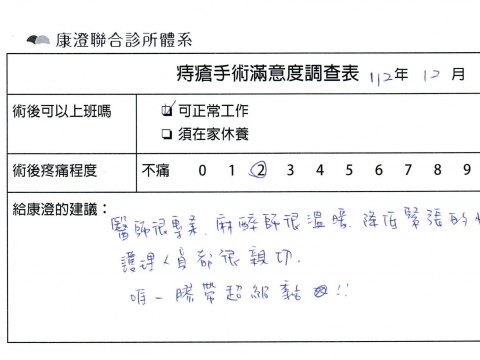 康澄聯合診所體系
痔瘡手術滿意度調查表 112年 12月
術後可以上班嗎
可正常工作
須在家休養
術後疼痛程度 不痛 0 1 2 3 4 5 6 7 8 9
給康澄的建議：
醫師很專業、麻醉師很溫暖、降低緊張的
護理人員都很親切.
唯一膠帶超級黏!!